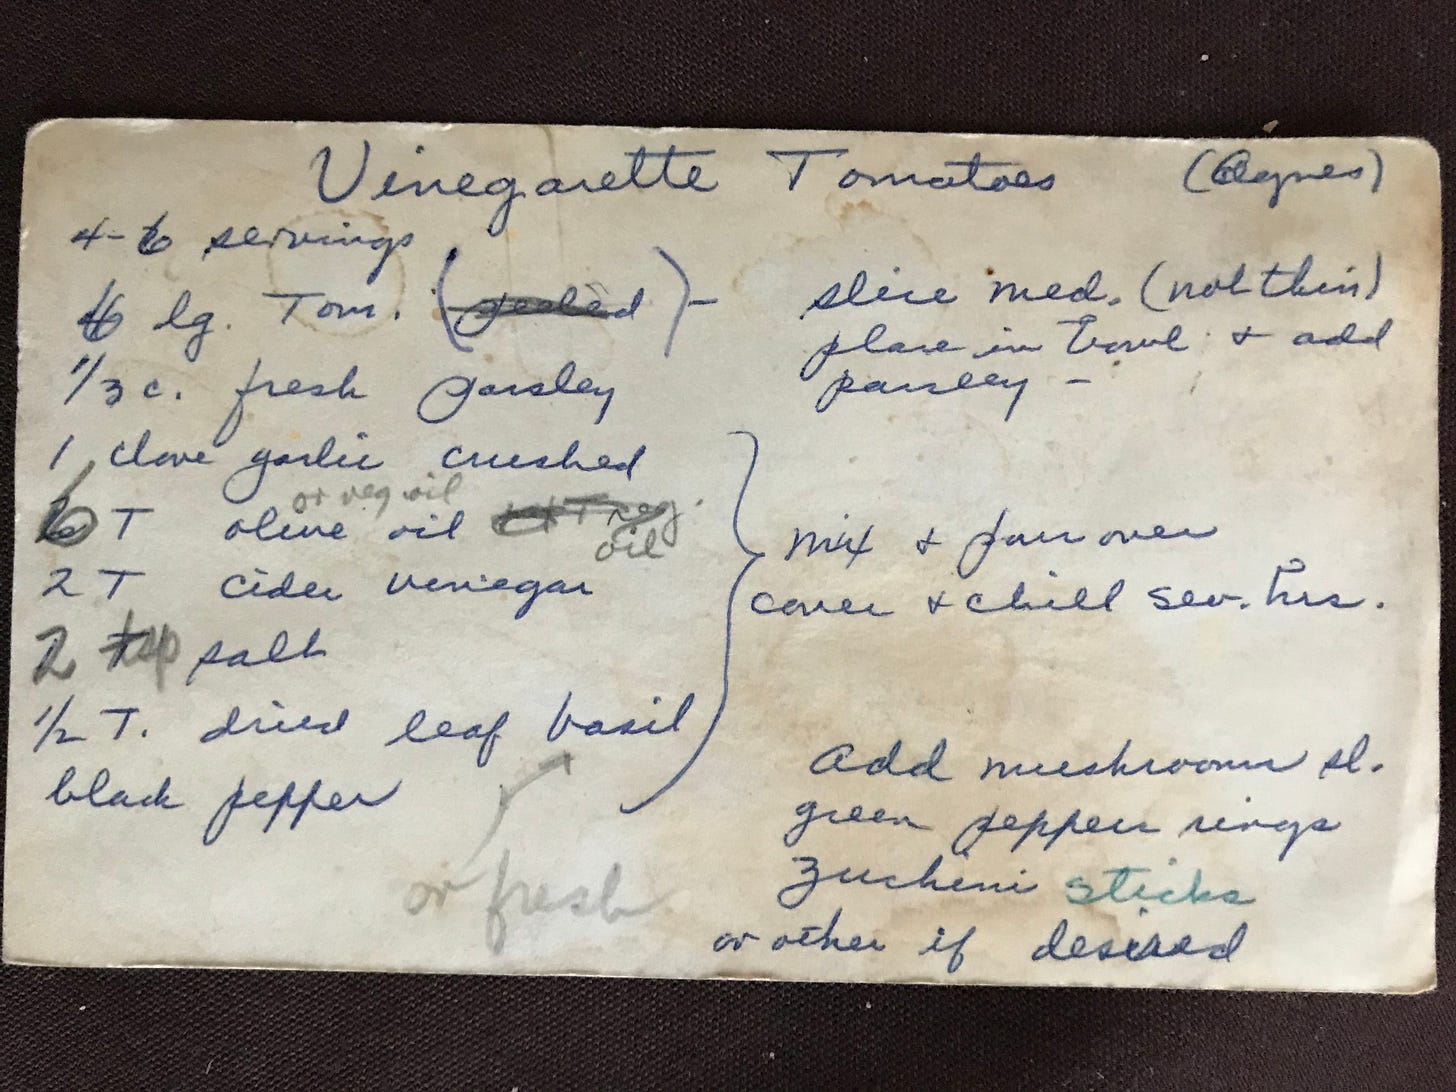 Vinegarette Tomatoes (Agnes)
4-6 servings
6 lg. Tom. (peeled) -
slice med. (not thin)
place in bowl & add
parsley -
1/3 c. fresh parsley
1 clove garlic crushed
or veg oil
6 T olive oil veg.
oil
2 T cider venegar
2 tsp salt
1/2 T. dried leaf basil
black pepper
or fresh
mix & pour over
cover & chill sev. hrs.
add mushrooms sl.
green pepper rings
zuchini sticks
or other if desired